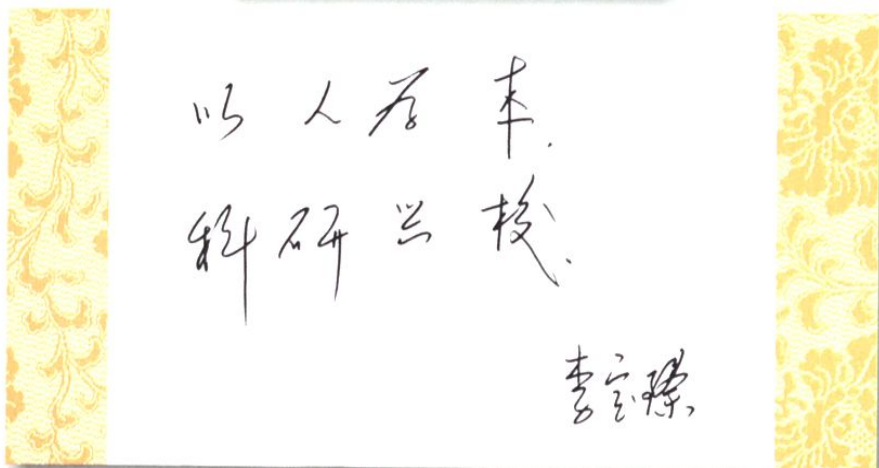 以人为本.
科研兴校.
李宝臻